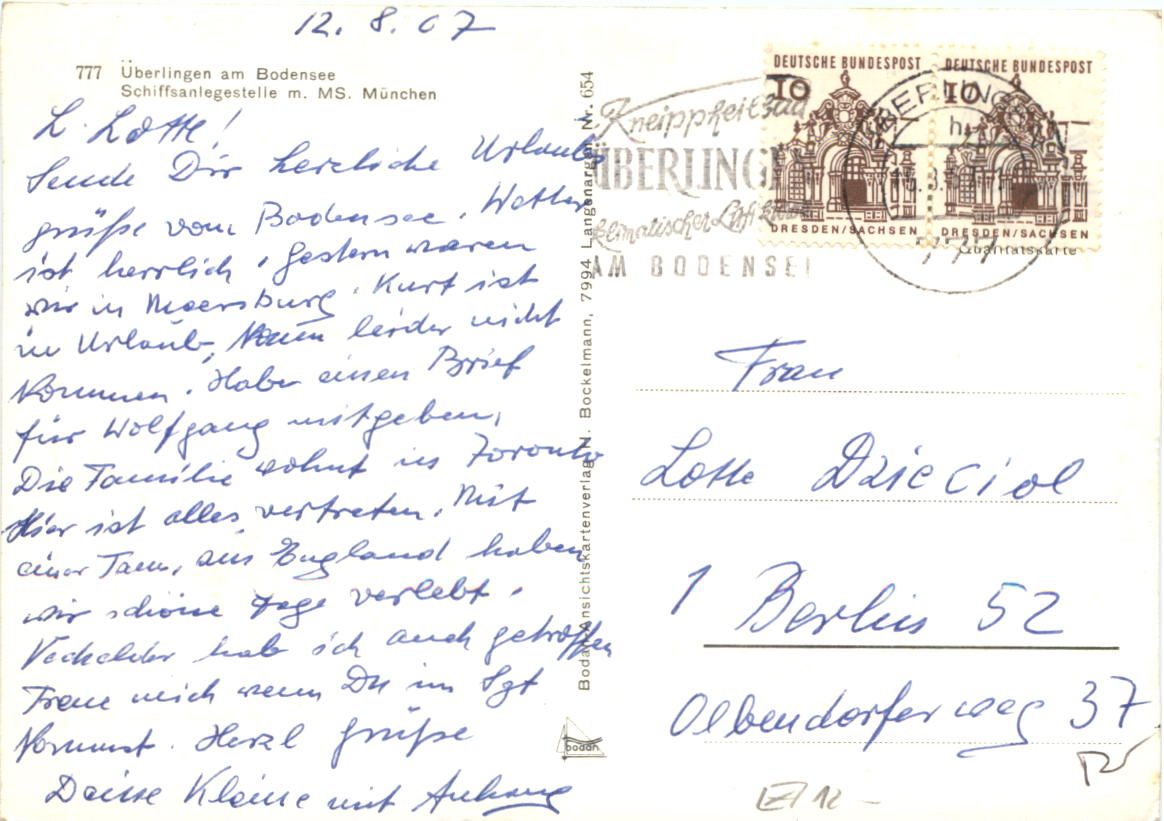 12. 8. 67
777 Überlingen am Bodensee
Schiffsanlegestelle m. MS. München
L. Lotte!
Sende Dir herzliche Urlaubs
grüße vom Bodensee. Wetter
ist herrlich, gestern waren
wir in Meersburg. Kurt ist
in Urlaub, leider nicht
kommen. Habe einen Brief
für Wolfgang mitgeben,
Die Familie wohnt in Toronto
Hier ist alles vertreten. Mit
einer Fam. aus England haben
wir schöne Tage verlebt.
hab ich auch getroffen
Freue mich wenn Du im Sept
kommst. Herzl Grüße
Deine Kleine mit Anhang
Bodan-Ansichtskartenverlag N. Bockelmann, 7994 Langenargen, Nr. 654
bodan
Kneippheilbad
ÜBERLINGEN
klimatischer Luftkurort
AM BODENSEE
DEUTSCHE BUNDESPOST
10
DRESDEN/SACHSEN
DEUTSCHE BUNDESPOST
10
DRESDEN/SACHSEN
ÜBERLINGEN
h
Qualitätskarte
Frau
Lotte Dzieciol
1 Berlin 52
Olbendorferweg 37
12-